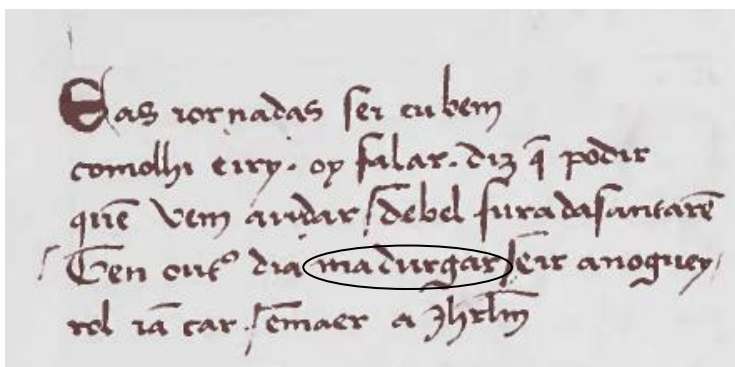 Eas iornadas sei eu bem
comolhi eiry. oy falar. diz q̃ podir
quẽ vem andar / debel furadasantarẽ
Cen outº dia madurgar / eir anoguey /
rol iã car. / ẽmaer a Jhrlm̃